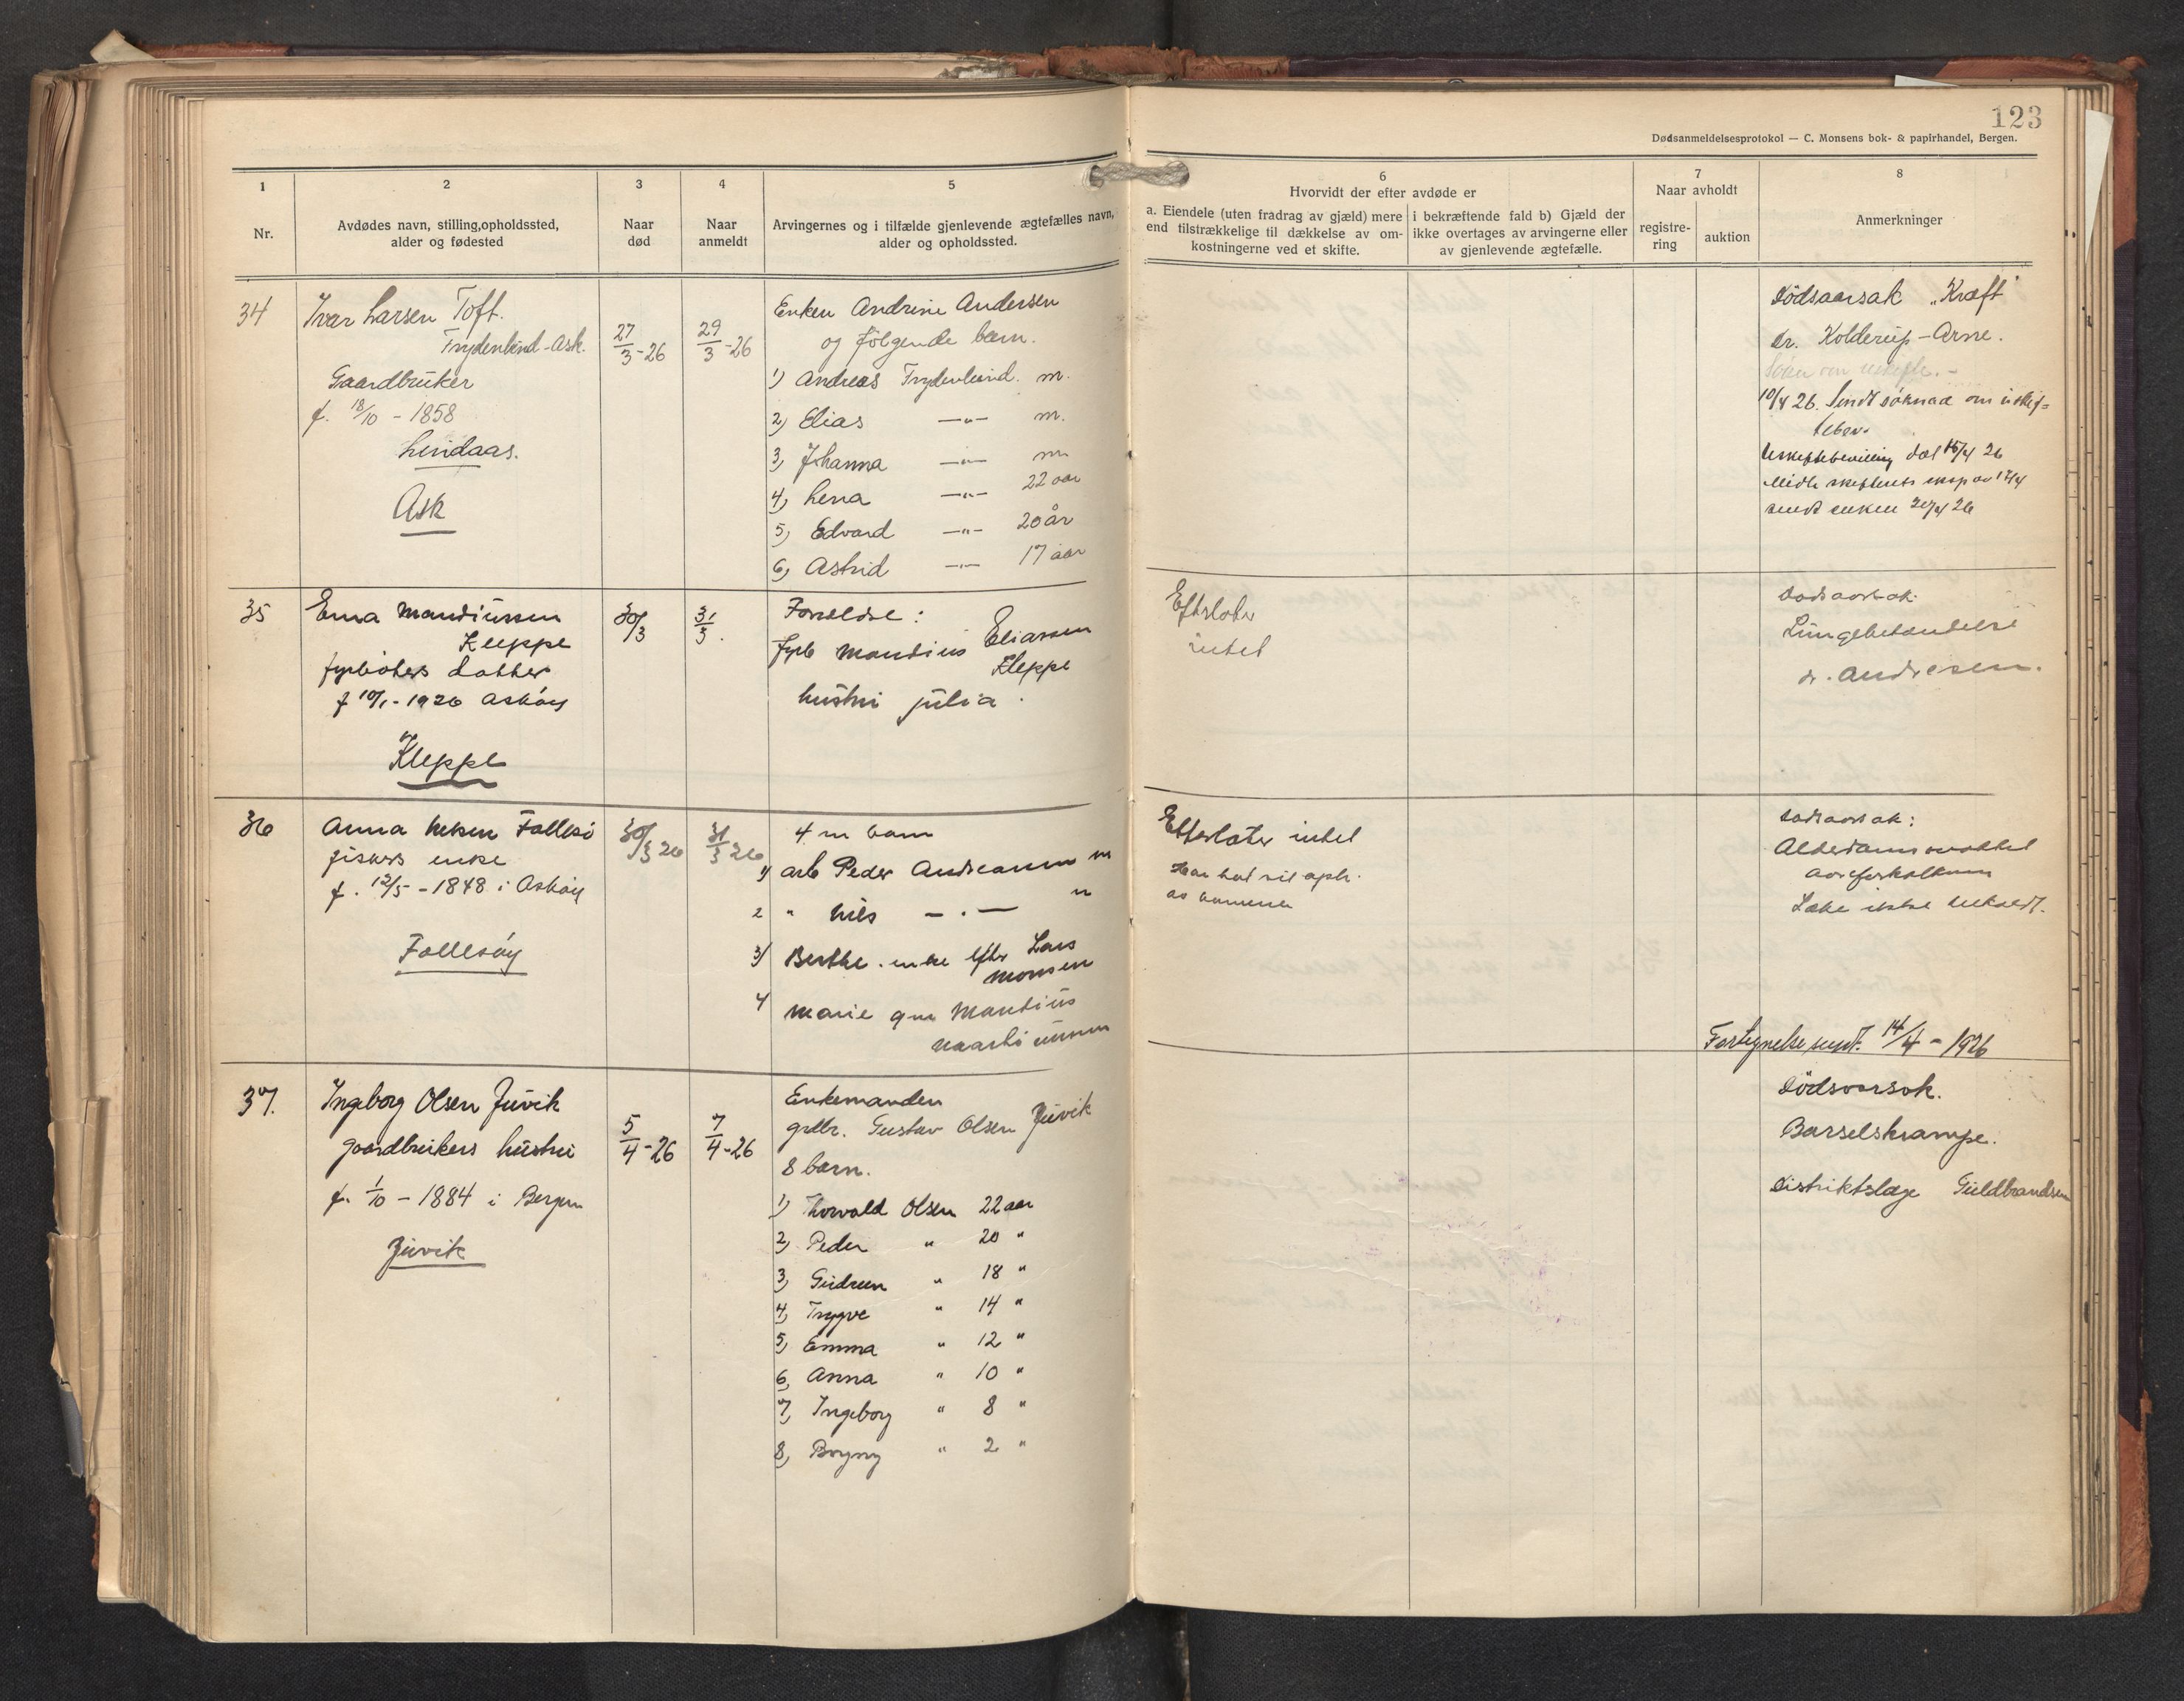 123
Dødsanmeldelsesprotokol — C. Monsens bok- & papirhandel, Bergen.
1
2
3
4
5
6
7
8
Nr.
Avdødes navn, stilling,opholdssted,
alder og fødested
Naar
død
Naar
anmeldt
Arvingernes og i tilfælde gjenlevende ægtefælles navn,
alder og opholdssted.
Hvorvidt der efter avdøde er
a. Eiendele (uten fradrag av gjæld) mere
end tilstrækkelige til dækkelse av om-
kostningerne ved et skifte.
i bekræftende fald b) Gjæld der
ikke overtages av arvingerne eller
av gjenlevende ægtefælle.
Naar avholdt
registre-
ring
auktion
Anmerkninger
34
Ivar Larsen Toft.
Frydenlund-Ask.
Gaardbruker
f. 18/10 - 1858
Lindaas.
Ask
27/3-26
29/3-26
Enken Andrine Andersen
og følgende barn.
1) Andreas Frydenlund. m.
2) Elias —"— m.
3) Johanna —"— m
4) Lena —"— 22 aar
5) Edvard —"— 20 år
6) Astrid —"— 17 aar
Dödsaarsak "Kræft"
dr. Kolderup-Arne.
10/4 26. Sendt söknad om uskif=
tebev.
Uskiftebevilling dat 15/4 26
sendt enken 20/4 26
35
Erna Mandiussen
Kleppe
fyrböters datter
f 10/1-1926 Asköy
Kleppe
30/3
31/3.
Foreldre:
fyrb Mandius Eliassen
Kleppe
hustru Julia.
Efterlater
intet
Dødsaarsak:
Lungebetændelse
dr. Andresen.
36
Anna Nilsen Follesö
fiskers enke
f. 12/5 - 1848 i Asköy
Follesöy
30/3 26
31/3 26
4 m barn
1) arb Peder Andreassen m
2 " Nils —"— m
3) Berthe. enke efter Lars
Monsen
4 Marie gm Mandius
Efterlater intet
Har hat sit oph.
av barnene
Dødsaarsak:
Alderdomssvakhet
aareforkalkning
Læke ikke tilkaldt.
Fortegnelse sendt. 14/4 - 1926
37.
Ingeborg Olsen Juvik
gaardbrukers hustru
f. 1/10 - 1884 i Bergen
Juvik
5/4-26
7/4-26
Enkemanden
grdbr. Gustav Olsen Juvik
8 barn.
1) Thorvald Olsen 22 aar
2) Peder " 20 "
3) Gudrun " 18 "
4) Trygve " 14 "
5) Emma " 12 "
6, Anna " 10 "
7, Ingeborg " 8 "
8, Borgny " 2 "
Dödsaarsak.
Barselskrampe.
Distriktslæge Guldbrandsen